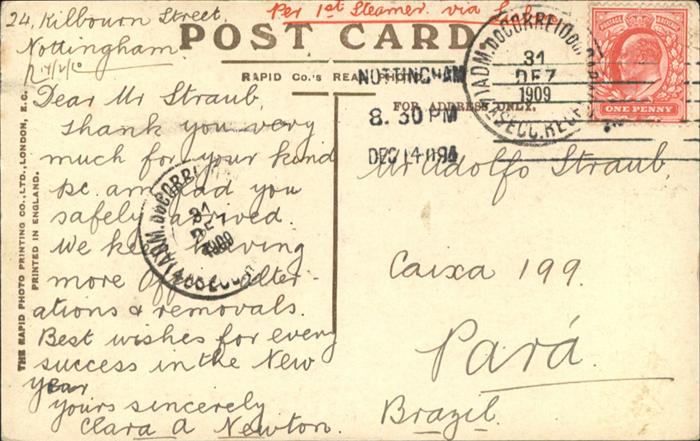 24, Kilbourn Street.
Nottingham
Per 1st Steamer via
POST CARD
RAPID Co.'s
NOTTINGHAM
8.30 PM
DEC 14
FOR ADDRESS ONLY.
31
DEZ
1909
POSTAGE REVENUE
ONE PENNY
Dear Mr Straub,
Thank you very
much for your kind
pc. am glad you
safely arrived.
We keep having
more Office Alter-
ations & removals.
Best wishes for every
success in the New
Year
yours sincerely
Clara A Newton.
31
DEZ
1909
Mr Adolfo Straub,
Caixa 199.
Pará
Brazil.
THE RAPID PHOTO PRINTING CO., LTD., LONDON, E.C.
PRINTED IN ENGLAND.